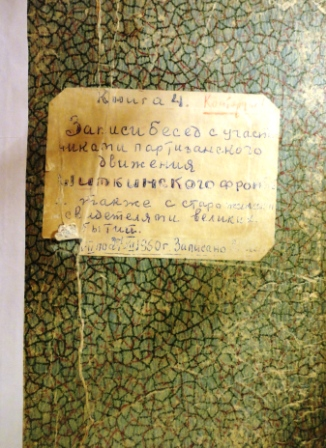 Книга 4.
Записи бесед с участ
никами партизанского
движения
Шиткинского фрон
также с старожил
свидетелями велики
бытий.
1960 г. Записано